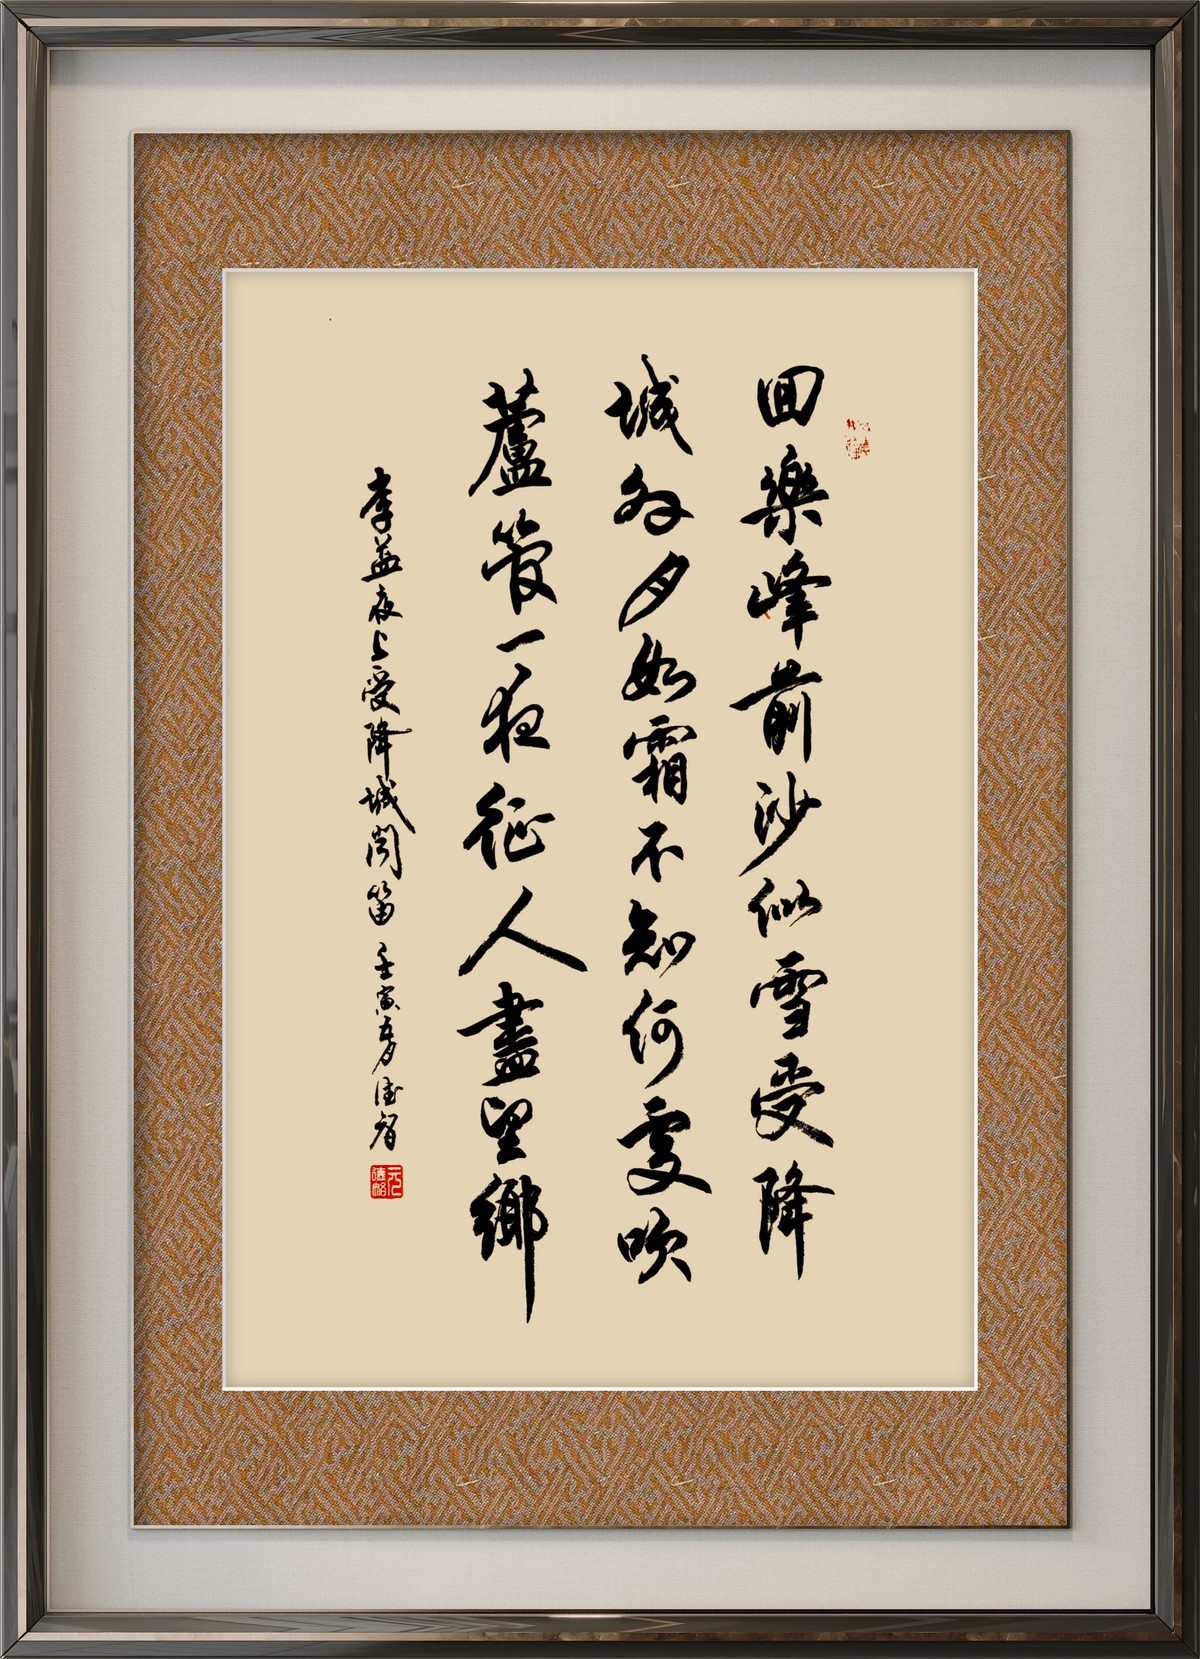 回樂峰前沙似雪受降
城外月如霜不知何處吹
蘆管一夜征人盡望鄉
李益夜上受降城聞笛 壬寅夏德智